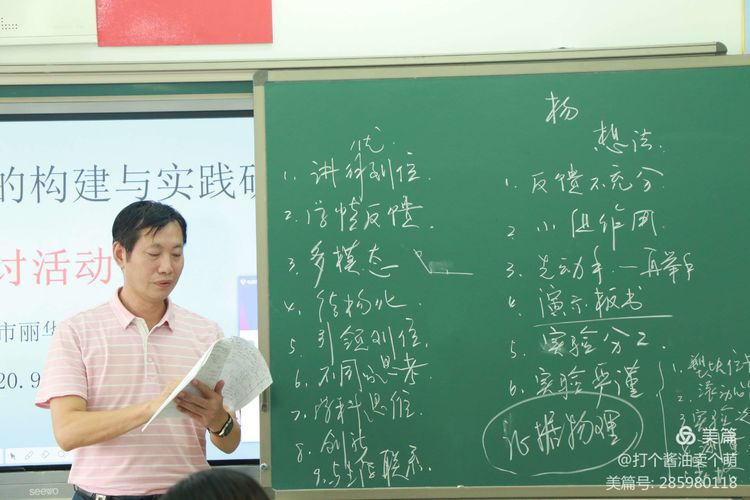 的构建与实践研
讨活动
市丽华
20.9
seewo
优
1. 讲解到位
2. 学情反馈
3. 多模态
4. 结构化
5. 引领到位
6. 不同的思考
7. 学科思维
8. 创新
9. 与生活联系
杨
想法
1. 反馈不充分
2. 小组作用
3. 先动手—再举手
4. 演示板书
5. 实验分工
6. 实验严谨
证据物理
1.
2. 滚动
3. 实验
美篇
@打个酱油卖个萌
美篇号: 285980118